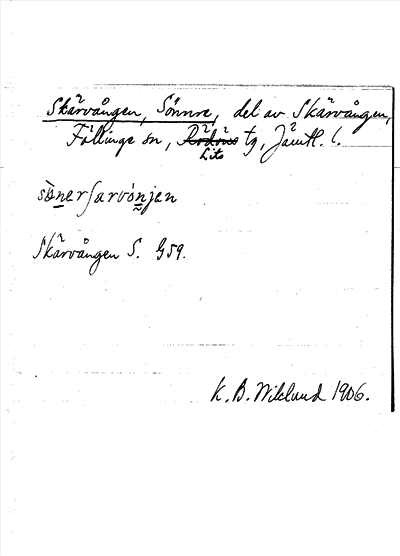 Skärvången, Sönnre, del av Skärvången,
Föllinge sn, Rödöns tg, Jämtl. l.
Lits
Skärvången S. G59.
K. B. Wiklund 1906.